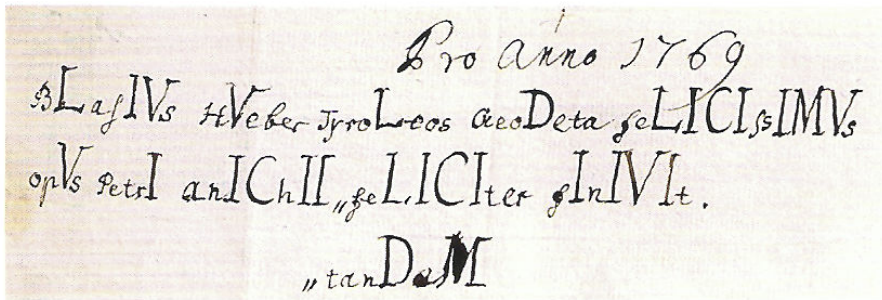 Pro Anno 1769
BLaſIVs HVeber TyroLeos GeoDeta feLICIſsIMVs
opVs PetrI anIChII „feLICIter fInIVIt.
„tanDeM